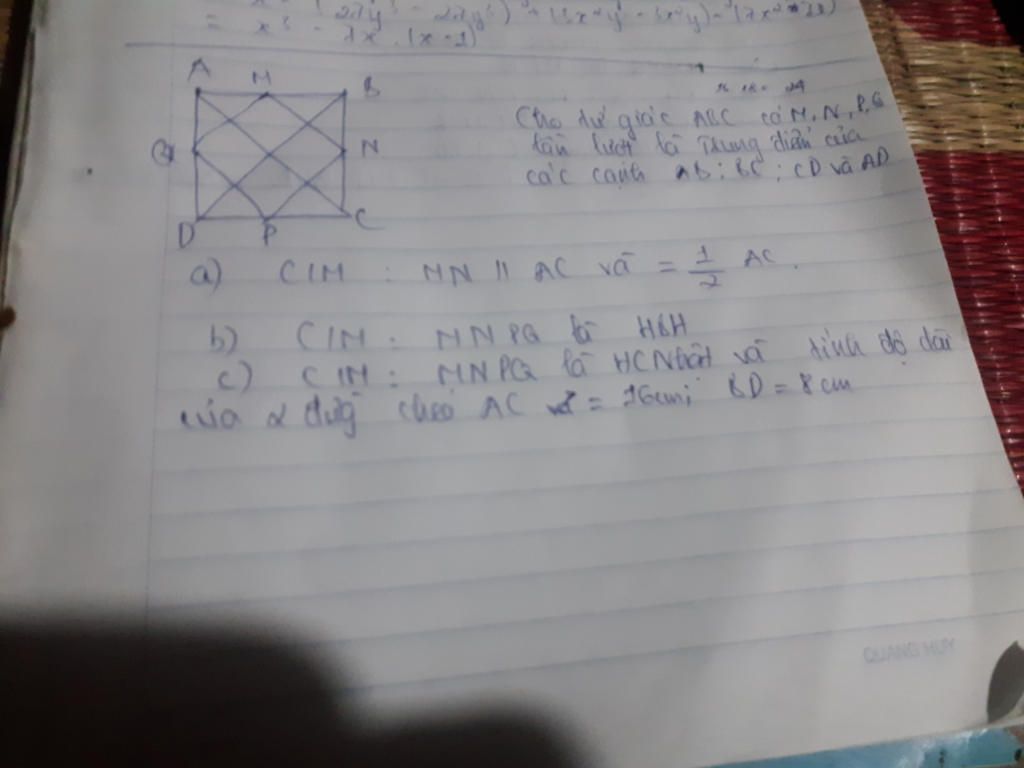 = x³ - 7x . (x - 1)
A M B
Q N
D P C
Cho tứ giác ABC có M, N, P, Q
lần lượt là trung điểm của
các cạnh AB ; BC ; CD và AD
a) C/M : MN // AC và = 1/2 AC.
b) C/M : MNPQ là HBH
c) C/M : MNPQ là HCNhật và tính độ dài
của 2 đường chéo AC = 16cm; BD = 8 cm
QUANG HUY